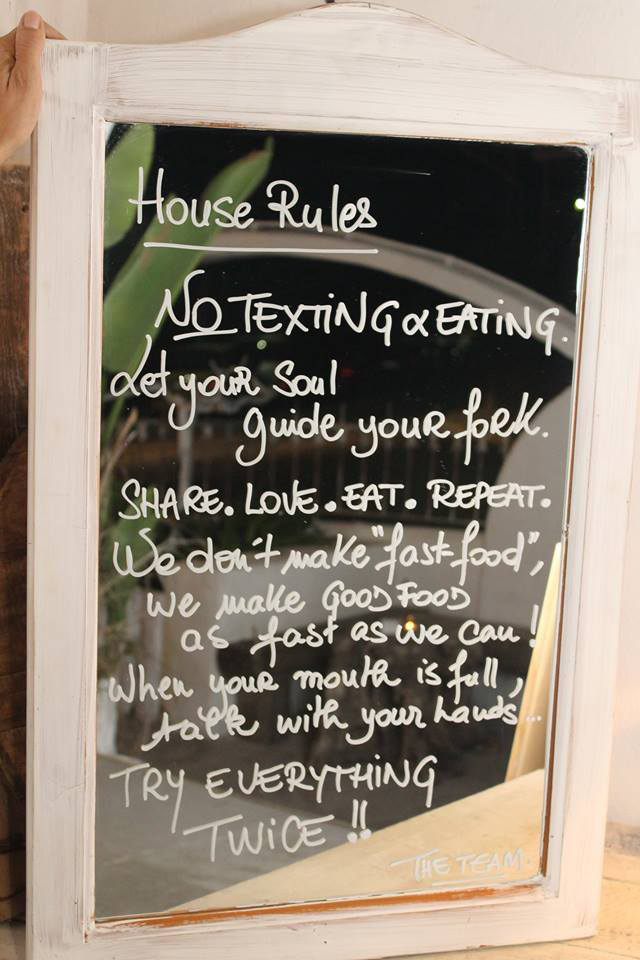 House Rules
NO TEXTING & EATING.
Let your Soul
guide your fork.
SHARE. LOVE. EAT. REPEAT.
We don't make "fast food",
we make GOOD FOOD
as fast as we can!
When your mouth is full,
talk with your hands...
TRY EVERYTHING
TWICE!!
THE TEAM.